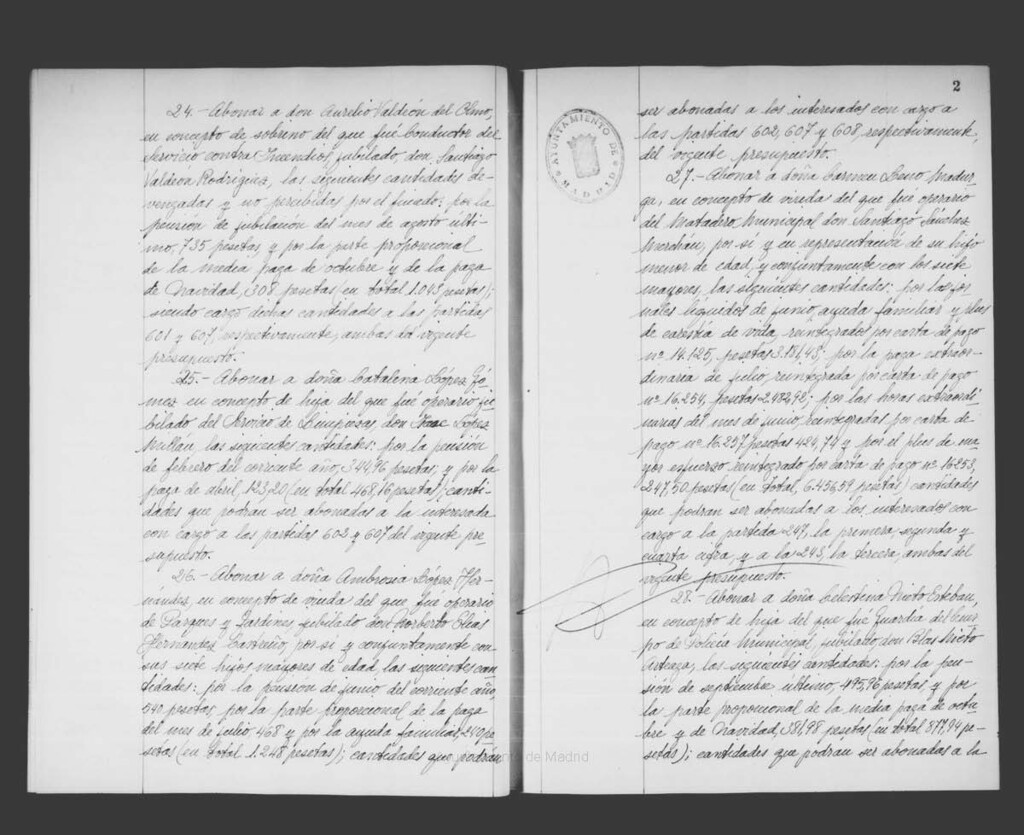 24.- Abonar a don Aurelio Valdeón del Olmo,
en concepto de sobrino del que fué Conductor del
Servicio contra Incendios, jubilado, don Santiago
Valdeón Rodríguez, las siguientes cantidades de-
vengadas y no percibidas por el finado: por la
pensión de jubilación del mes de agosto últi-
mo, 735 pesetas, y por la parte proporcional
de la media paga de octubre y de la paga
de Navidad, 308 pesetas (en total 1.043 pesetas);
siendo cargo dichas cantidades a las partidas
601 y 607, respectivamente, ambas del vigente
presupuesto.
25.- Abonar a doña Catalina López Gó-
mez, en concepto de hija del que fué operario ju-
bilado del Servicio de Limpiezas, don Isaac López
Millán, las siguientes cantidades: por la pensión
de febrero del corriente año, 344,96 pesetas, y por la
paga de abril, 123,20 (en total 468,16 pesetas); canti-
dades que podrán ser abonadas a la interesada
con cargo a las partidas 602 y 607 del vigente pre-
supuesto.
26.- Abonar a doña Ambrosia López Her-
nández, en concepto de viuda del que fué operario
de Parques y Jardines, jubilado, don Norberto Elías
Hernández Castreño, por sí y conjuntamente con
sus siete hijos mayores de edad, las siguientes can-
tidades: por la pensión de junio del corriente año,
540 pesetas, por la parte proporcional de la paga
del mes de julio, 468 y por la ayuda familiar, 240 pe-
setas (en total 1.248 pesetas); cantidades que podrán
2
AYUNTAMIENTO DE
MADRID
ser abonadas a los interesados con cargo a
las partidas 602, 607 y 608, respectivamente,
del vigente presupuesto.
27.- Abonar a doña Carmen Madur-
ga, en concepto de viuda del que fué operario
del Matadero Municipal don Santiago Sánchez
Merchán, por sí y en representación de su hijo
menor de edad, y conjuntamente con los siete
mayores, las siguientes cantidades: por los jor-
nales líquidos de junio, ayuda familiar y plus
de carestía de vida, reintegrados por carta de pago
nº 14.125, pesetas 3.181,43; por la paga extraor-
dinaria de julio, reintegrada por carta de pago
nº 16.254, pesetas por las horas extraordi-
narias del mes de junio, reintegradas por carta de
pago nº 16.257 pesetas 424,74 y por el plus de ma-
yor esfuerzo, reintegrado por carta de pago nº 16253,
247,50 pesetas (en total, pesetas) cantidades
que podrán ser abonadas a los interesados con
cargo a la partida 247, la primera, segunda y
cuarta cifra, y a la 248, la tercera, ambas del
vigente presupuesto.
28.- Abonar a doña Celestina Nieto Esteban,
en concepto de hija del que fué Guardia del Cuer-
po de Policía Municipal, jubilado, don Blas Nieto
Arteaga, las siguientes cantidades: por la pen-
sión de septiembre último, 495,96 pesetas, y por
la parte proporcional de la media paga de octu-
bre y de Navidad, 381,98 pesetas (en total 877,94 pe-
setas); cantidades que podrán ser abonadas a la
de Madrid